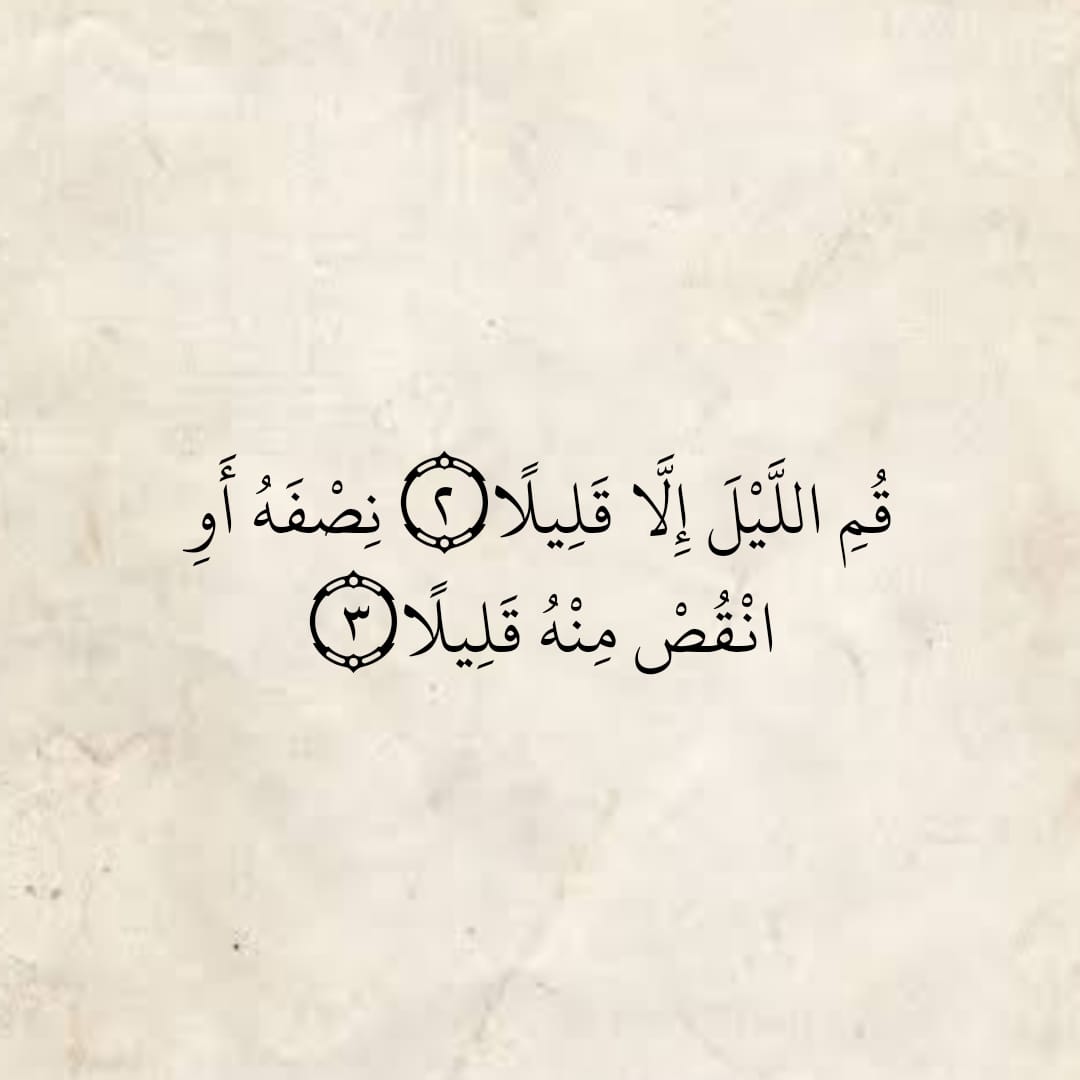 قُمِ اللَّيْلَ إِلَّا قَلِيلًا ۝٢ نِصْفَهُ أَوِ
انْقُصْ مِنْهُ قَلِيلًا ۝٣